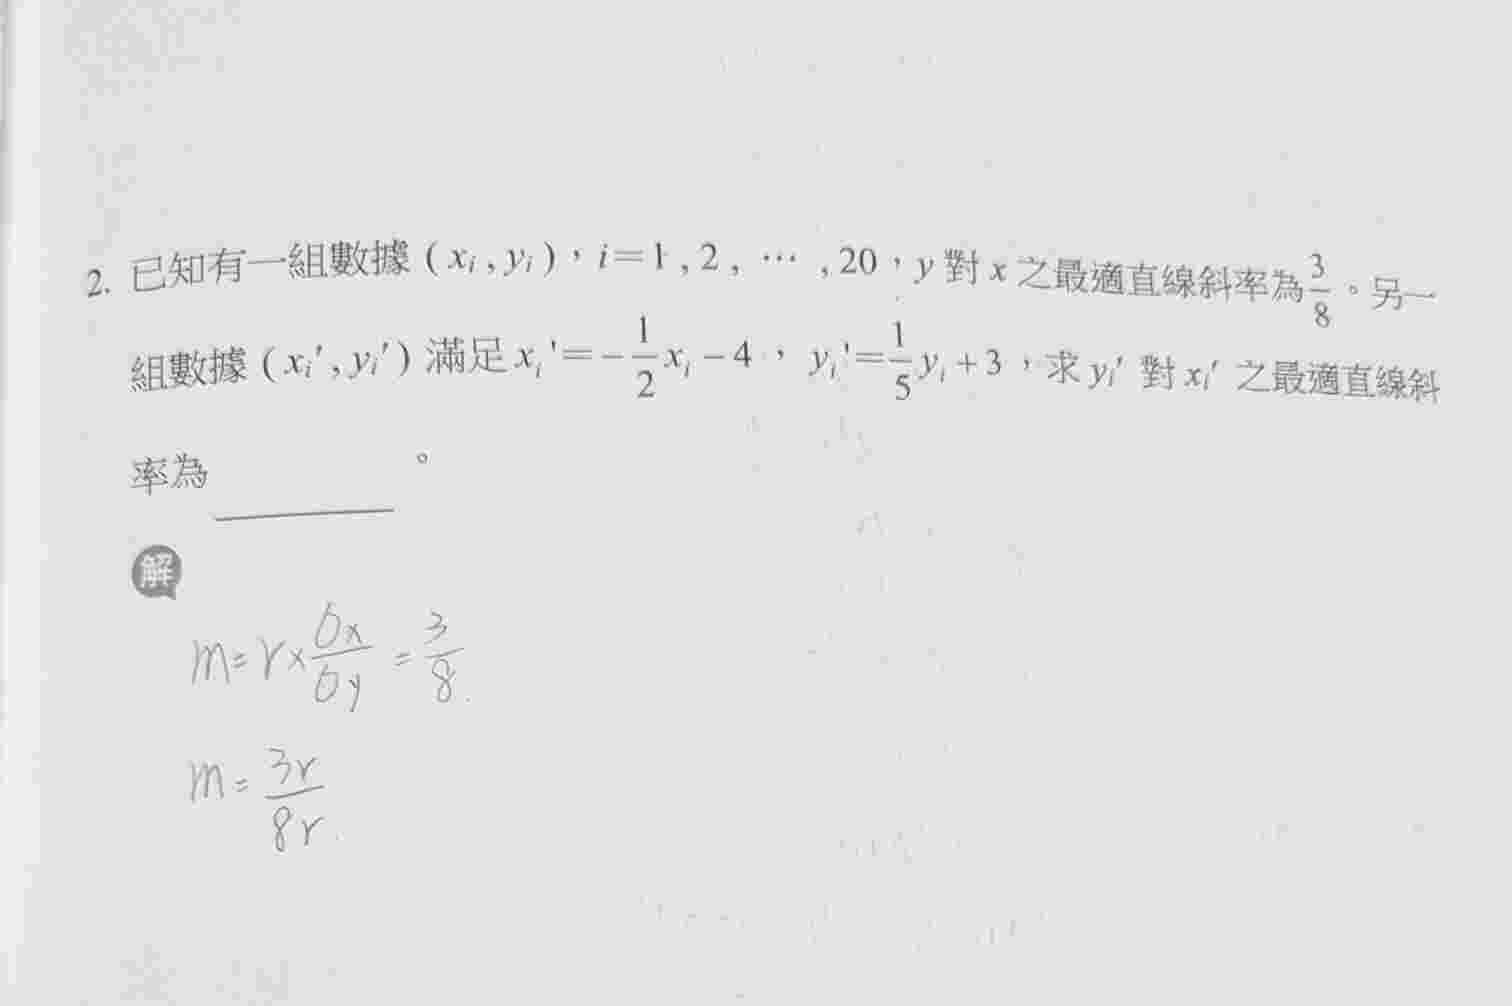 2. 已知有一組數據 ( xi , yi ),i=1 , 2 , … , 20,y 對 x 之最適直線斜率為 3/8。另一
組數據 ( xi′ , yi′ ) 滿足 xi'=-1/2 xi-4, yi'=1/5 yi+3,求 yi′ 對 xi′ 之最適直線斜
率為 ________。
解
m=r×σx/σy=3/8.
m=3r/8r.